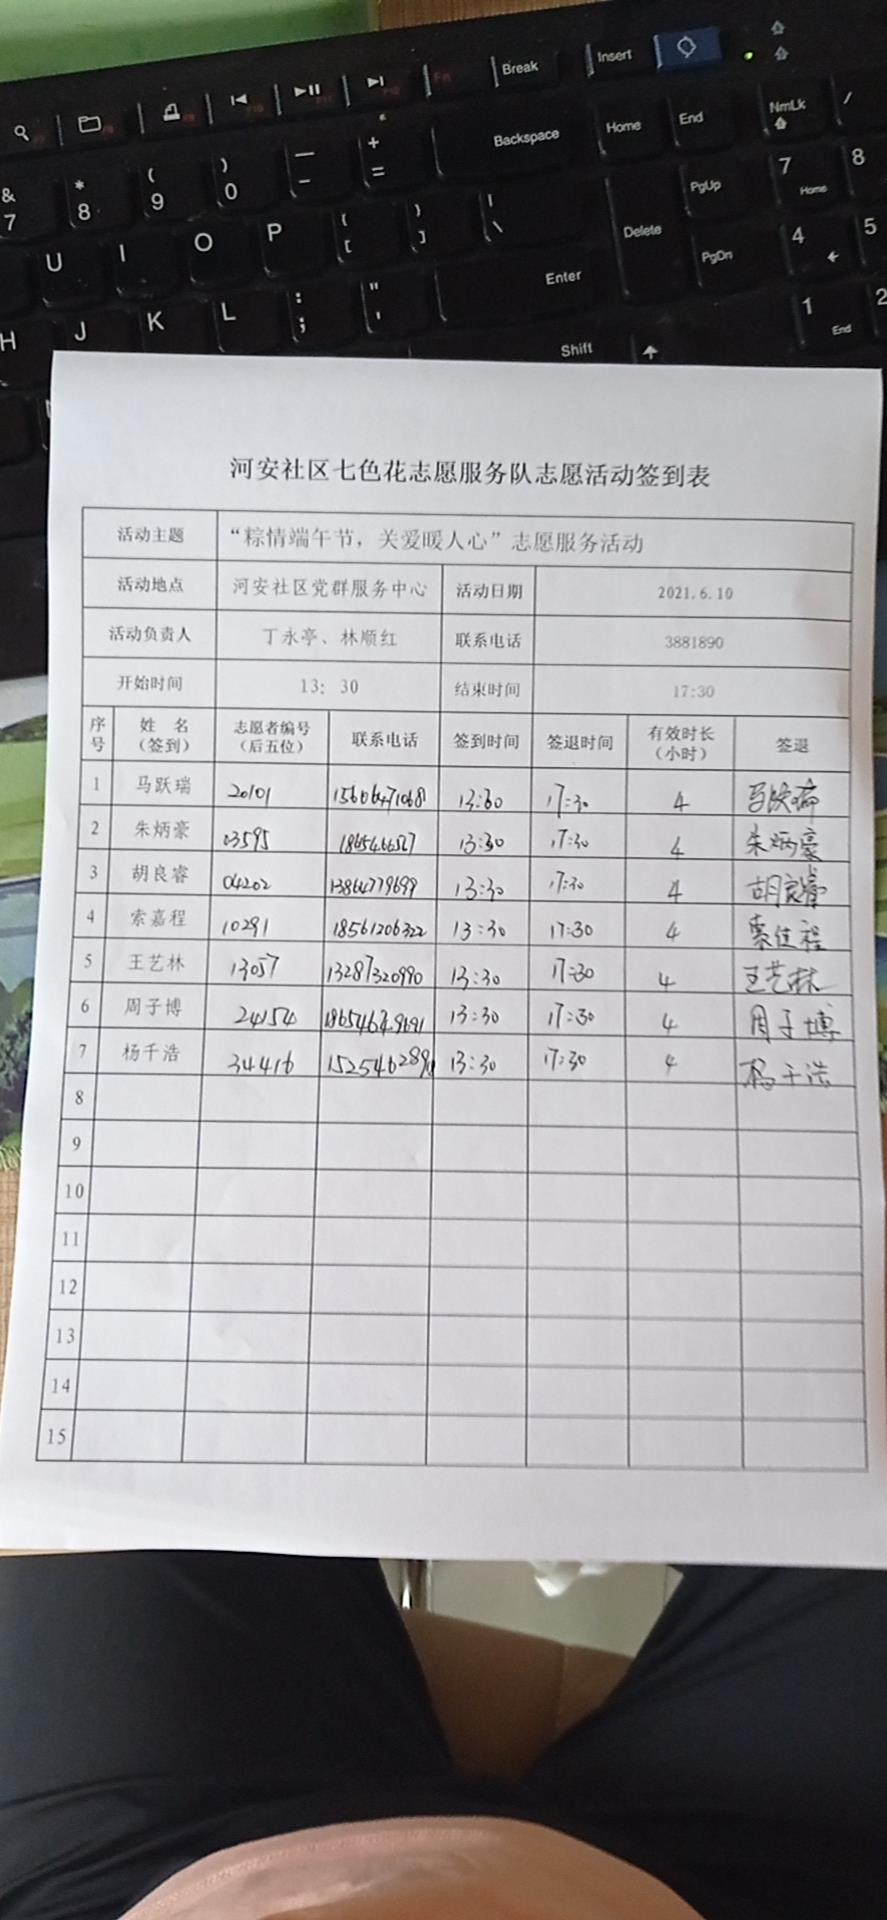 Break
Insert
F7 F8 F9 F10 F11 F12 Fn
& 7
* 8
( 9
) 0
— -
+ =
Backspace
Home
End
NmLk
/
U I O P
{ [
} ]
| \
Delete
PgUp
PgDn
7 Home
8
4
5
H J K L
: ;
" '
Enter
1 End
2
Shift
河安社区七色花志愿服务队志愿活动签到表
活动主题 “粽情端午节，关爱暖人心”志愿服务活动
活动地点 河安社区党群服务中心 活动日期 2021.6.10
活动负责人 丁永亭、林顺红 联系电话 3881890
开始时间 13：30 结束时间 17:30
序号 姓 名（签到） 志愿者编号（后五位） 联系电话 签到时间 签退时间 有效时长（小时） 签退
1 马跃瑞 20101 15606471068 13:30 17:30 4 马跃瑞
2 朱炳豪 03595 13:30 17:30 4 朱炳豪
3 胡良睿 04202 13864779699 13:30 17:30 4 胡良睿
4 索嘉程 10291 18561206322 13:30 17:30 4
5 王艺林 13057 13287320990 13:30 17:30 4 王艺林
6 周子博 24154 13:30 17:30 4 周子博
7 杨千浩 34416 13:30 17:30 4 杨千浩
8
9
10
11
12
13
14
15